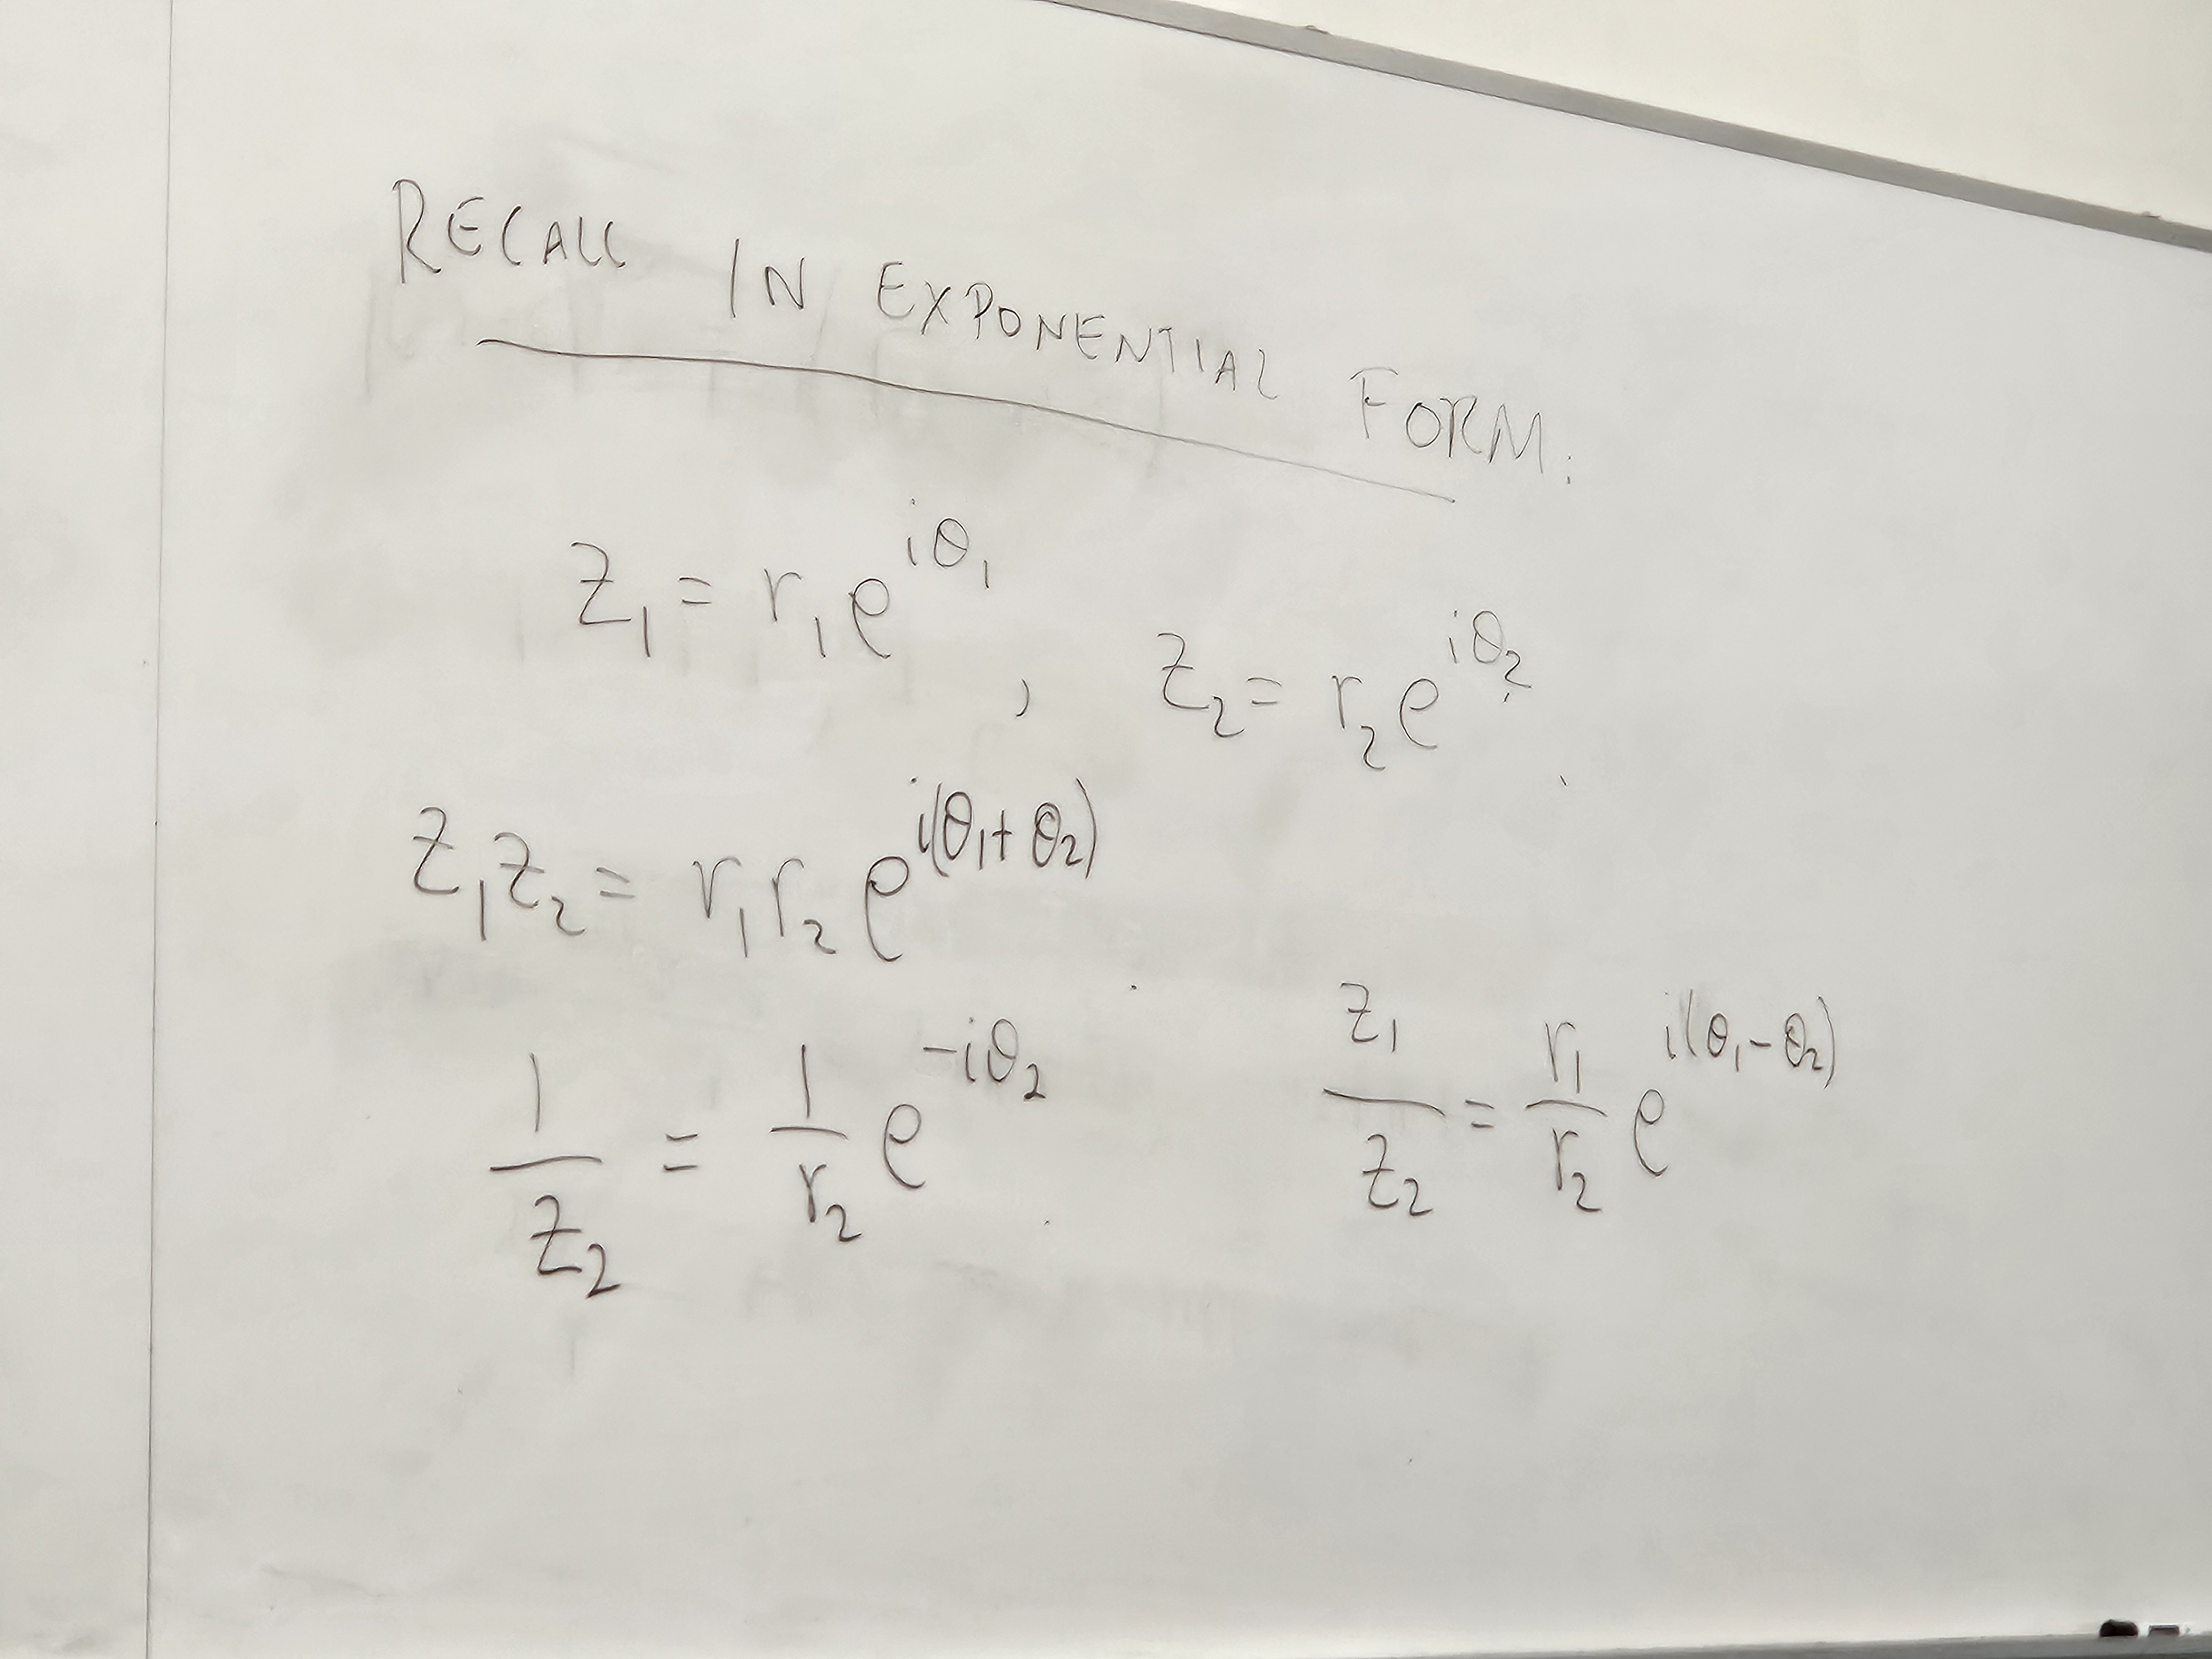 RECALL IN EXPONENTIAL FORM:
z₁ = r₁e^{iθ₁}, z₂ = r₂e^{iθ₂}.
z₁z₂ = r₁r₂e^{i(θ₁+θ₂)}.
1/z₂ = 1/r₂ e^{-iθ₂}. z₁/z₂ = r₁/r₂ e^{i(θ₁-θ₂)}